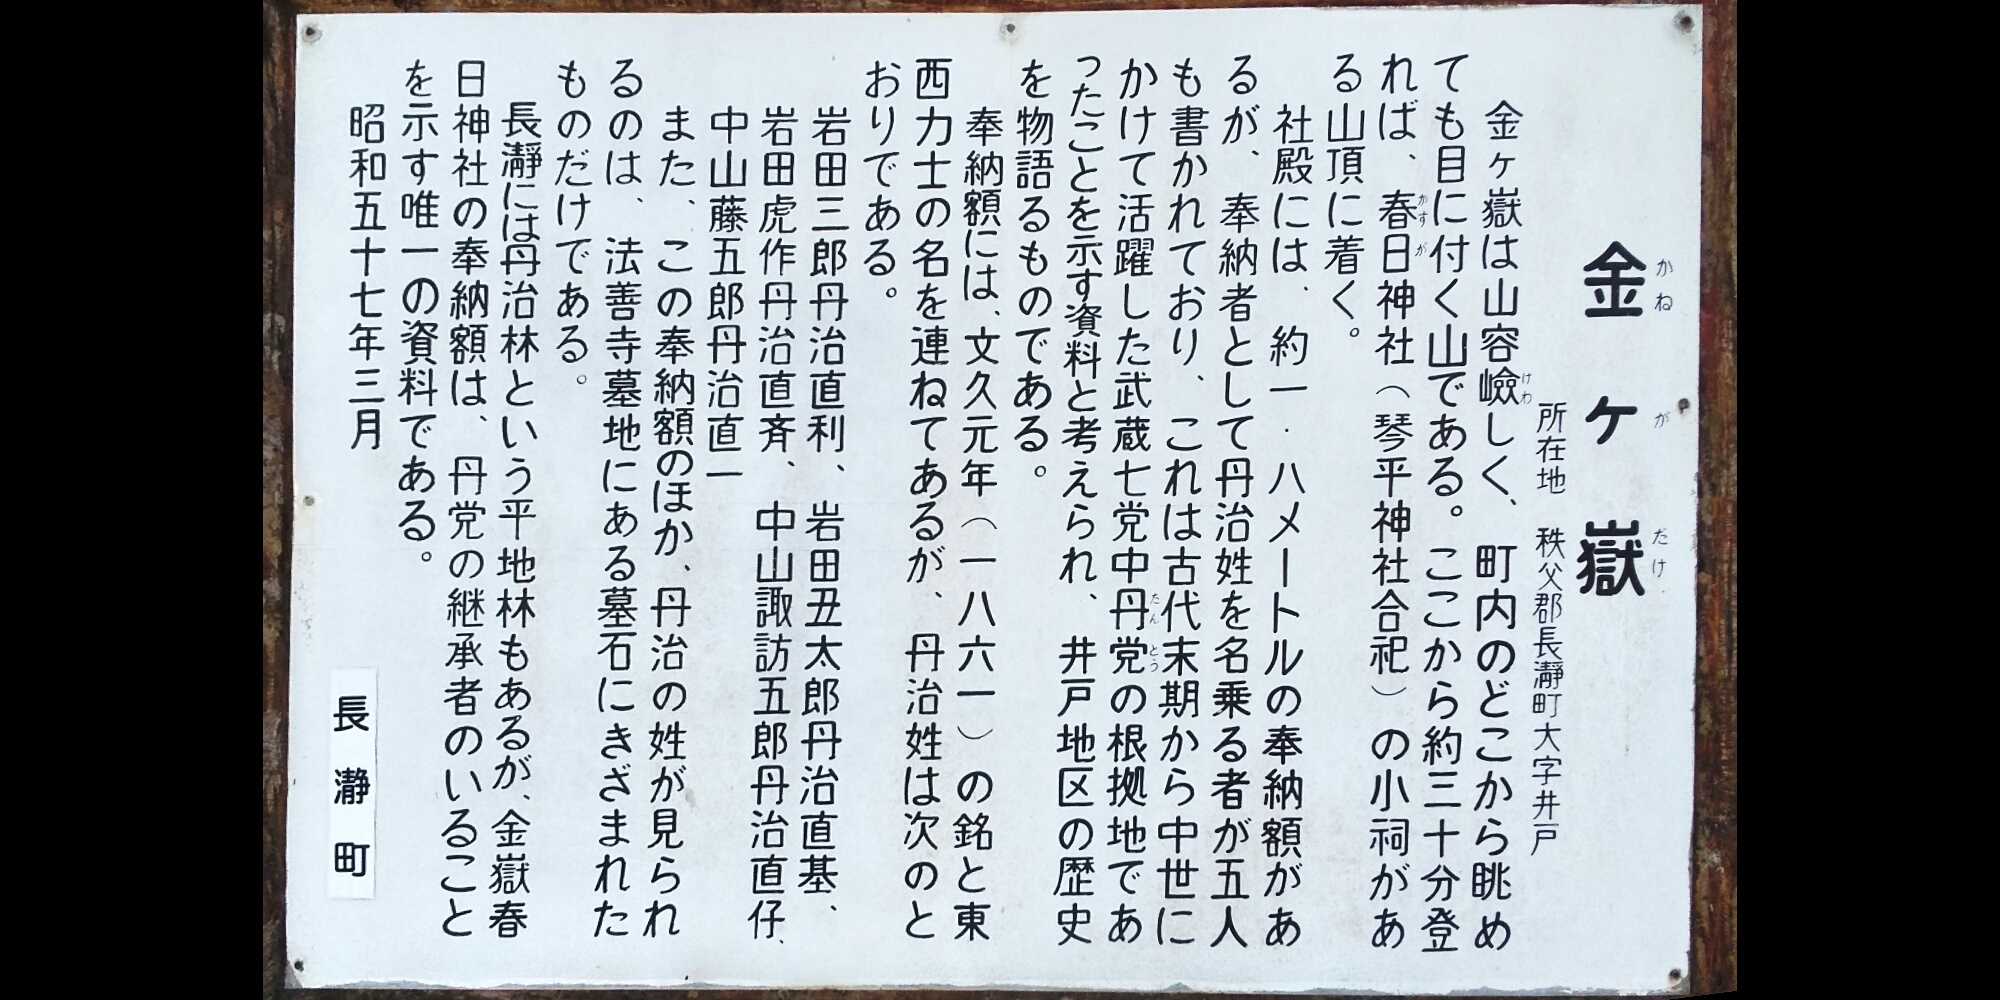 金ヶ嶽
かね が だけ
所在地 秩父郡長瀞町大字井戸
金ヶ嶽は山容嶮しく、町内のどこから眺め
けわ
ても目に付く山である。ここから約三十分登
れば、春日神社(琴平神社合祀)の小祠があ
かすが
る山頂に着く。
社殿には、約一・八メートルの奉納額があ
るが、奉納者として丹治姓を名乗る者が五人
も書かれており、これは古代末期から中世に
かけて活躍した武蔵七党中丹党の根拠地であ
たんとう
ったことを示す資料と考えられ、井戸地区の歴史
を物語るものである。
奉納額には、文久元年(一八六一)の銘と東
西力士の名を連ねてあるが、丹治姓は次のと
おりである。
岩田三郎丹治直利、岩田丑太郎丹治直基、
岩田虎作丹治直斉、中山諏訪五郎丹治直仔、
中山藤五郎丹治直一
また、この奉納額のほか、丹治の姓が見られ
るのは、法善寺墓地にある墓石にきざまれた
ものだけである。
長瀞には丹治林という平地林もあるが、金嶽春
日神社の奉納額は、丹党の継承者のいること
を示す唯一の資料である。
昭和五十七年三月
長瀞町